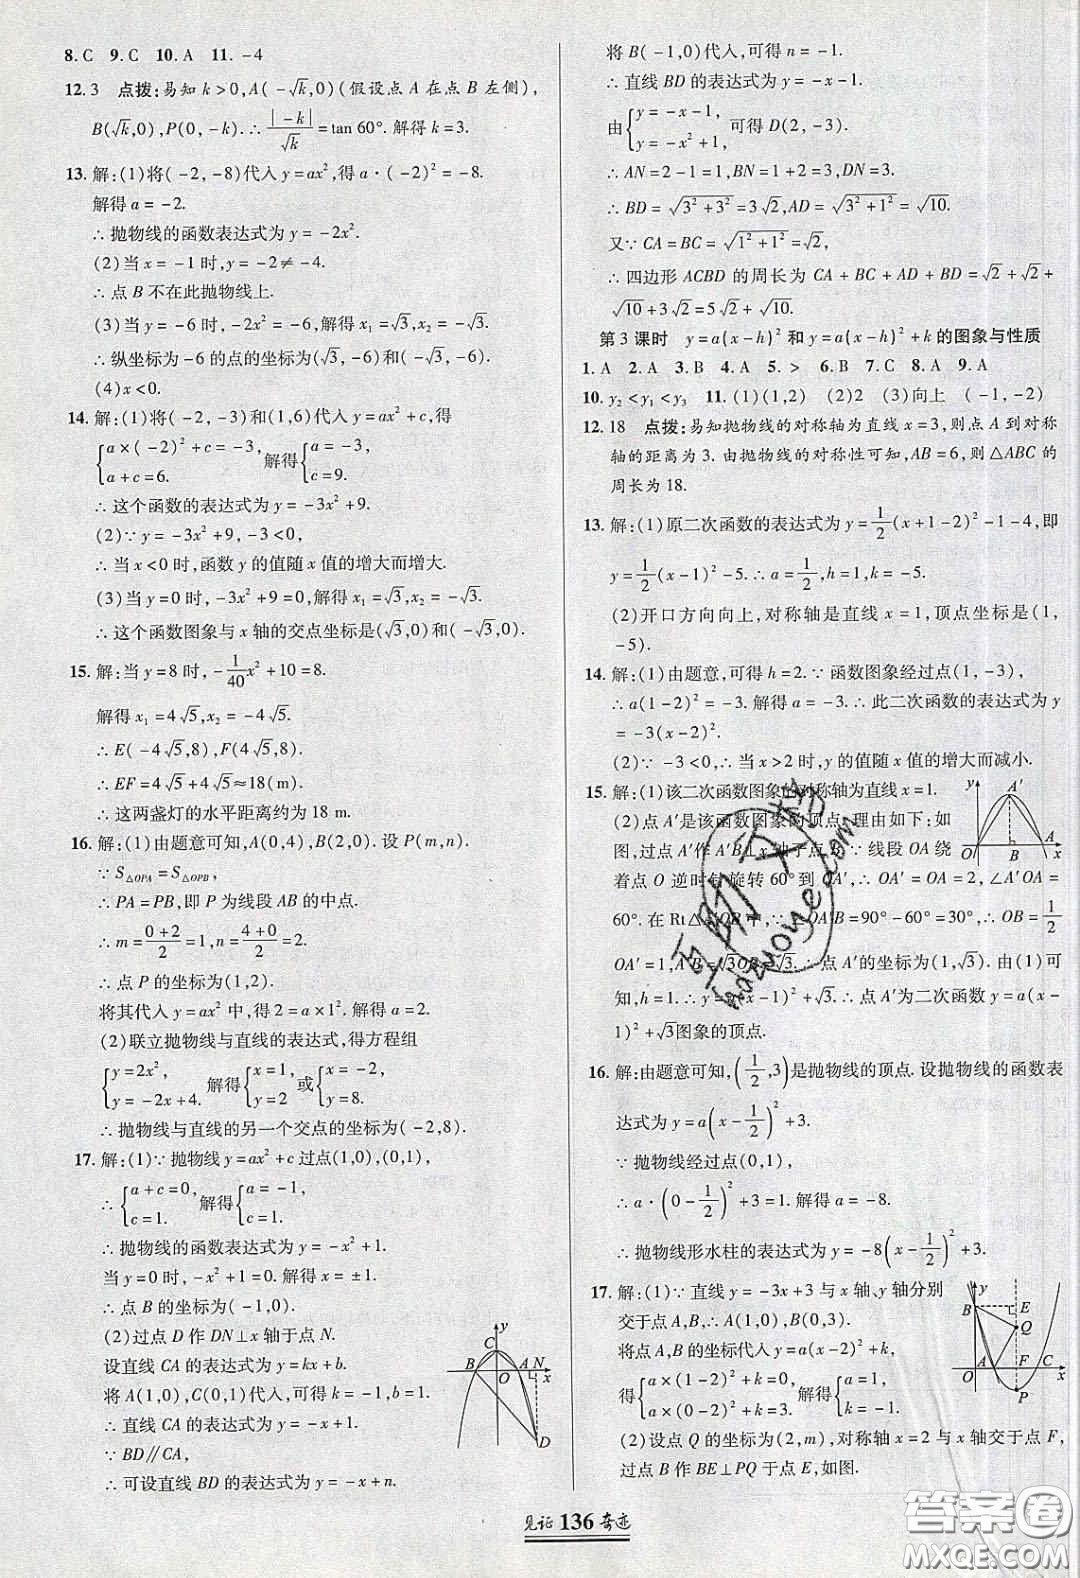 8. C  9. C  10. A  11. -4
12. 3  点拨:易知 k>0,A(-√k,0)(假设点 A 在点 B 左侧),
B(√k,0),P(0,-k).∴|-k|/√k=tan 60°.解得 k=3.
13. 解:(1)将(-2,-8)代入 y=ax²,得 a·(-2)²=-8.
解得 a=-2.
∴抛物线的函数表达式为 y=-2x².
(2)当 x=-1 时,y=-2≠-4.
∴点 B 不在此抛物线上.
(3)当 y=-6 时,-2x²=-6,解得 x₁=√3,x₂=-√3.
∴纵坐标为-6 的点的坐标为(√3,-6)和(-√3,-6).
(4)x<0.
14. 解:(1)将(-2,-3)和(1,6)代入 y=ax²+c,得
{a×(-2)²+c=-3, a+c=6. 解得{a=-3, c=9.
∴这个函数的表达式为 y=-3x²+9.
(2)∵y=-3x²+9,-3<0,
∴当 x<0 时,函数 y 的值随 x 值的增大而增大.
(3)当 y=0 时,-3x²+9=0,解得 x₁=√3,x₂=-√3.
∴这个函数图象与 x 轴的交点坐标是(√3,0)和(-√3,0).
15. 解:当 y=8 时,-1/40x²+10=8.
解得 x₁=4√5,x₂=-4√5.
∴E(-4√5,8),F(4√5,8).
∴EF=4√5+4√5≈18(m).
∴这两盏灯的水平距离约为 18 m.
16. 解:(1)由题意可知,A(0,4),B(2,0).设 P(m,n).
∵S△OPA=S△OPB,
∴PA=PB,即 P 为线段 AB 的中点.
∴m=(0+2)/2=1,n=(4+0)/2=2.
∴点 P 的坐标为(1,2).
将其代入 y=ax² 中,得 2=a×1².解得 a=2.
(2)联立抛物线与直线的表达式,得方程组
{y=2x², y=-2x+4. 解得{x=1, y=2. 或{x=-2, y=8.
∴抛物线与直线的另一个交点的坐标为(-2,8).
17. 解:(1)∵抛物线 y=ax²+c 过点(1,0),(0,1),
∴{a+c=0, c=1. 解得{a=-1, c=1.
∴抛物线的函数表达式为 y=-x²+1.
当 y=0 时,-x²+1=0.解得 x=±1.
∴点 B 的坐标为(-1,0).
(2)过点 D 作 DN⊥x 轴于点 N.
设直线 CA 的表达式为 y=kx+b.
将 A(1,0),C(0,1)代入,可得 k=-1,b=1.
∴直线 CA 的表达式为 y=-x+1.
∵BD∥CA,
∴可设直线 BD 的表达式为 y=-x+n.
y
C
B O A N x
D
将 B(-1,0)代入,可得 n=-1.
∴直线 BD 的表达式为 y=-x-1.
由{y=-x-1, y=-x²+1, 可得 D(2,-3).
∴AN=2-1=1,BN=1+2=3,DN=3.
∴BD=√(3²+3²)=3√2,AD=√(3²+1²)=√10.
又∵CA=BC=√(1²+1²)=√2,
∴四边形 ACBD 的周长为 CA+BC+AD+BD=√2+√2+
√10+3√2=5√2+√10.
第 3 课时  y=a(x-h)² 和 y=a(x-h)²+k 的图象与性质
1. A  2. A  3. B  4. A  5. >  6. B  7. C  8. A  9. A
10. y₂<y₁<y₃  11. (1)(1,2)  (2)2  (3)向上  (-1,-2)
12. 18  点拨:易知抛物线的对称轴为直线 x=3,则点 A 到对称
轴的距离为 3.由抛物线的对称性可知,AB=6,则△ABC 的
周长为 18.
13. 解:(1)原二次函数的表达式为 y=1/2(x+1-2)²-1-4,即
y=1/2(x-1)²-5.∴a=1/2,h=1,k=-5.
(2)开口方向向上,对称轴是直线 x=1,顶点坐标是(1,
-5).
14. 解:(1)由题意,可得 h=2.∵函数图象经过点(1,-3),
∴a(1-2)²=-3.解得 a=-3.∴此二次函数的表达式为 y
=-3(x-2)².
(2)∵-3<0,∴当 x>2 时,y 的值随 x 值的增大而减小.
15. 解:(1)该二次函数图象的对称轴为直线 x=1.
(2)点 A′是该函数图象的顶点.理由如下:如
图,过点 A′作 A′B⊥x 轴于点 B.∵线段 OA 绕
着点 O 逆时针旋转 60°到 OA′,∴OA′=OA=2,∠A′OA=
60°.在 Rt△A′OB 中,∵∠OA′B=90°-60°=30°,∴OB=1/2
OA′=1,A′B=√3OB=√3.∴点 A′的坐标为(1,√3).由(1)可
知,h=1.∴y=a(x-1)²+√3.∴点 A′为二次函数 y=a(x-
1)²+√3图象的顶点.
y A′
O B A x
16. 解:由题意可知,(1/2,3)是抛物线的顶点.设抛物线的函数表
达式为 y=a(x-1/2)²+3.
∵抛物线经过点(0,1),
∴a·(0-1/2)²+3=1.解得 a=-8.
∴抛物线形水柱的表达式为 y=-8(x-1/2)²+3.
17. 解:(1)∵直线 y=-3x+3 与 x 轴、y 轴分别
交于点 A,B,∴A(1,0),B(0,3).
将点 A,B 的坐标代入 y=a(x-2)²+k,
得{a×(1-2)²+k=0, a×(0-2)²+k=3. 解得{a=1, k=-1.
(2)设点 Q 的坐标为(2,m),对称轴 x=2 与 x 轴交于点 F,
过点 B 作 BE⊥PQ 于点 E,如图.
y
B E
Q
A F C
O x
P
见证 136 奇迹
互助文档
huzuoye.com
答案圈
MXQE.COM